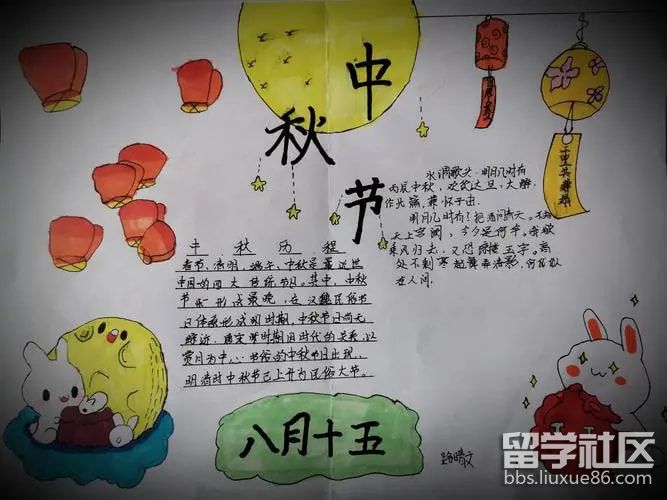 中
秋
节
千里共婵娟
水调歌头·明月几时有
丙辰中秋,欢饮达旦,大醉,
作此篇,兼怀子由。
明月几时有?把酒问青天。不知
天上宫阙,今夕是何年。我欲
乘风归去,又恐琼楼玉宇。高
处不剩寒起舞弄清影,何似
在人间。
中秋历程
春节、清明、端午、中秋是
中国的四大传统节日。其中,中秋
节形成最晚,在汉
日体系形成明时期。中秋节日尚无
时期因时代的关系,以
赏月为中心节俗的中秋节日出现,
明清时中秋节已上升为民俗大节。
八月十五
留学社区
bbs.liuxue86.com